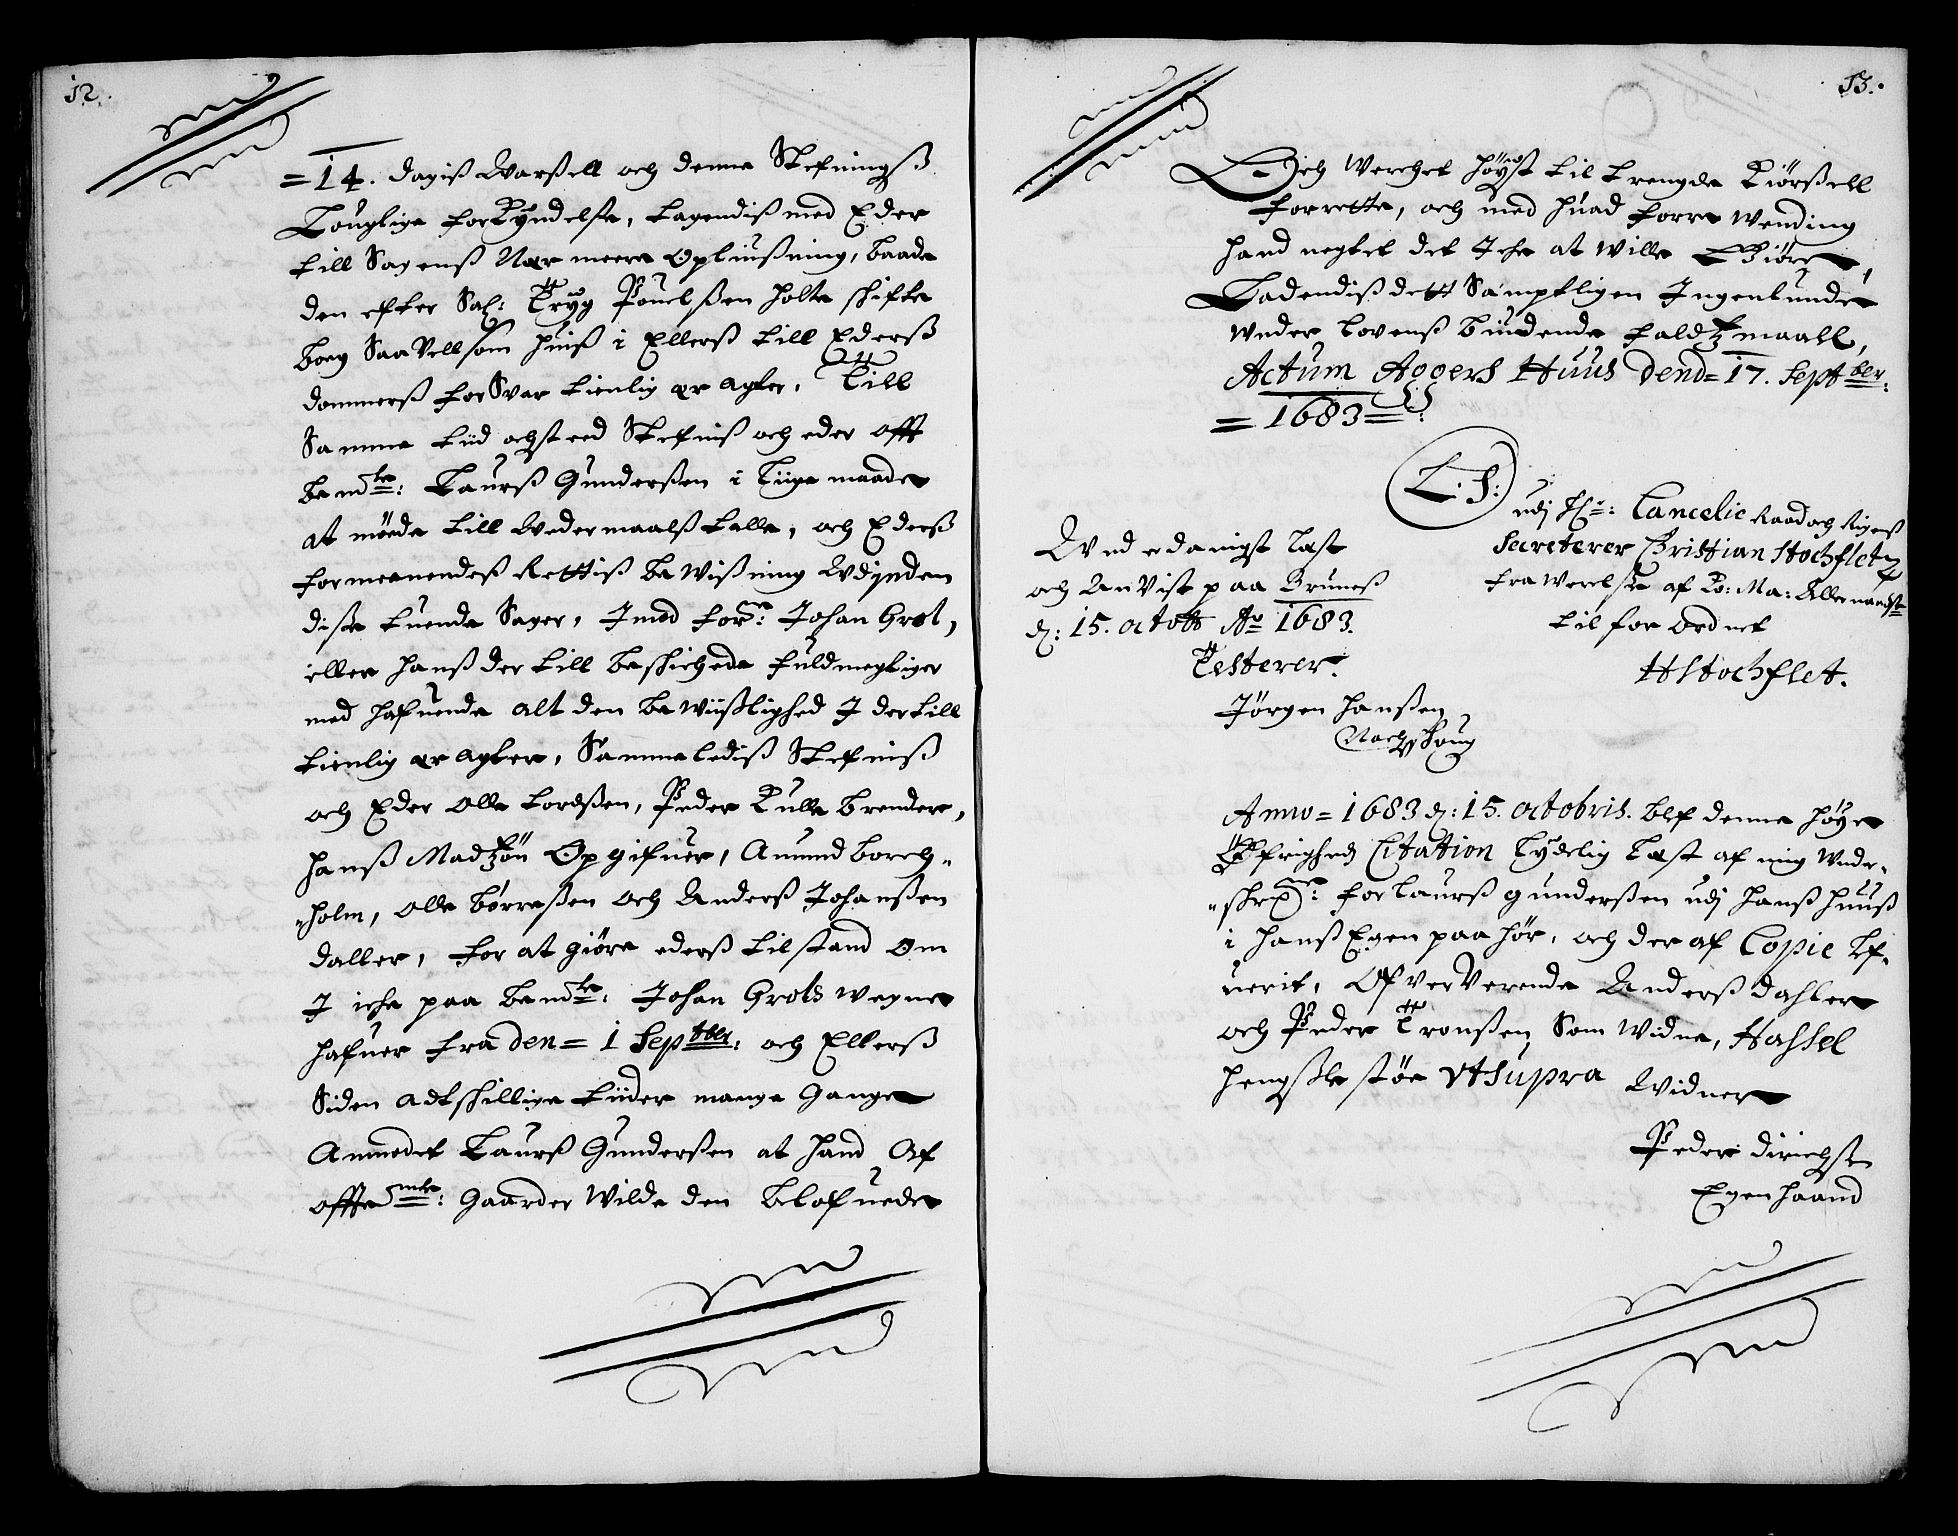 12.
=14. dagiß Warßell och denne Stefningß
Louglige forKyndelse, tagendiß med Eder
till Sagenß Nær meere Opliußning, baade
den efter Sal: Tryg Pouelßen holte skifte
bog SaaVellsom huiß i Ellerß till Ederß
dommerß forSvar tienlig er agter, Till
Samme tiid och sted Stefniß och eder offt
bemte: Laurß Gunderßen i liige maade
at møede till Wedermaalß talle, och Ederß
formeenendeß Rettiß beWißning Wdj
diße tuende Sager, Imod forne: Johan Grot,
eller hanß der till beskichede fuldmegtiger
med hafuende alt den beWiißlighed I dertill
tienlig er agter, Sammelediß Stefniß
och Eder Olle tordßen, Peder Kulle brender,
hanß Madtzøn Opgifuer, Amund borch-
-holm, Olle børreßen och Anderß Johanßen
daller, for at giøre ederß tilstand Om
I iche paa bemte: Johan Grots wegne
hafuer fra den = 1 Septber: och Ellerß
Siden adtskillige tiider mange Gange
Anmodet Laurß Gunderßen at hand Af
offtemte: Gaarder Wilde den belofuede
13.
Och Werchet høyst til trengde Kiørßell
forrette, och med huad forre wending
hand negtet det Iche at wille Giøre,
Ladendiß dett Samptligen Ingenlunde
wnder lovenß bindende faldtzmaall,
Actum Aggers Huus dend=17. Septber:
=1683=
L: S:
udj H: Cancelie Raad och Rigenß
Secreterer Christian Stochfletz
fra werelse af Ko: Ma: Allernaadste
til for Ordnet
HStochflet.
Wnderdanigst læst
och AnVist paa Bruneß
d: 15. octob Ao 1683.
Testerer.
Jørgen Hanßen
Nachschoug
Anno = 1683 d: 15. octobris. blef denne høye
Øfrigheds Citation lydelig læst af mig Wnder-
-skrefne: for Laurß gunderßen udj hanß huuß
i hanß Egen paahør, och der af Copie lef-
uerit, OfverVerende Anderß dahler
och Peder Tronßen Som widne, Hassel
hengßle støe Vt Supra Widner
Peder dirichsen
Egen haand